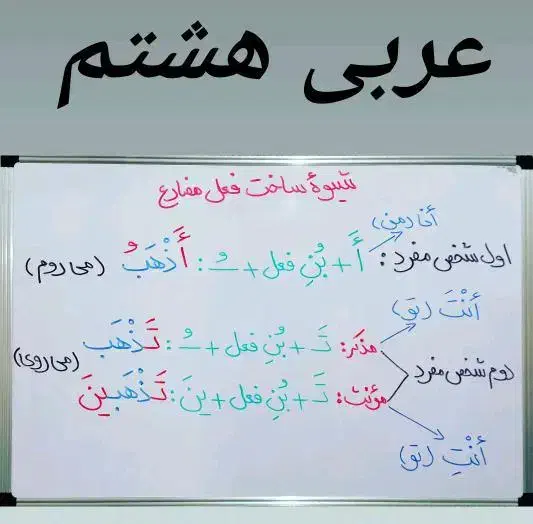 عربی هشتم
شیوهٔ ساخت فعل مضارع
أنا (من)
اول شخص مفرد: أَ + بُنِ فعل + ـُ : أَذْهَبُ (می روم)
أَنْتَ (تو)
مذکر: تَـ + بُنِ فعل + ـُ : تَذْهَبُ
دوم شخص مفرد (می روی)
مؤنث: تَـ + بُنِ فعل + ینَ : تَذْهَبینَ
أَنْتِ (تو)